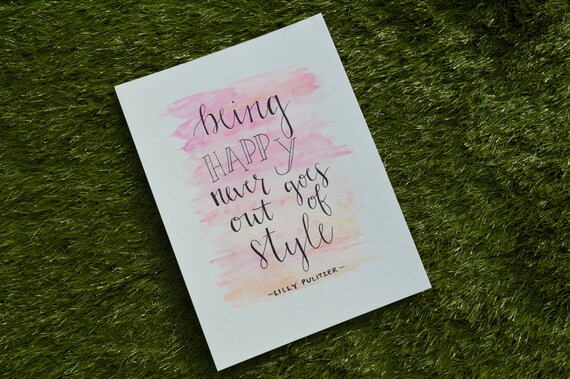 being
HAPPY
never goes
out of
style
-LILLY PULITZER-